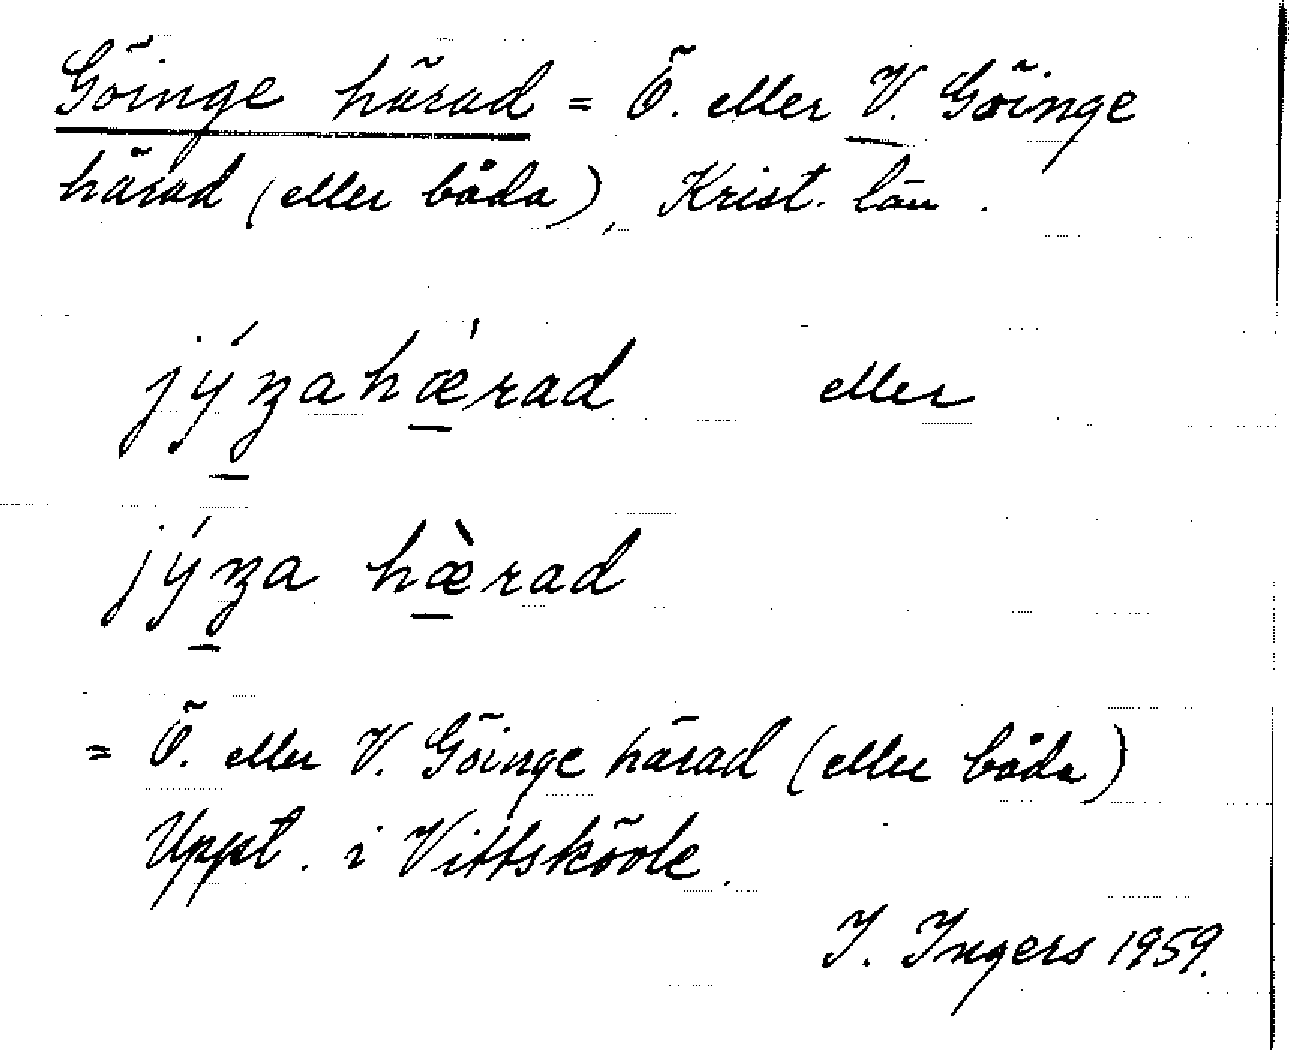 Göinge härad = Ö. eller V. Göinge
härad (eller båda), Krist. län.
jýʒahæ̀rad eller
jýʒa hæ̀rad
= Ö. eller V. Göinge härad (eller båda)
Uppt. i Vittskövle.
I. Ingers 1959.